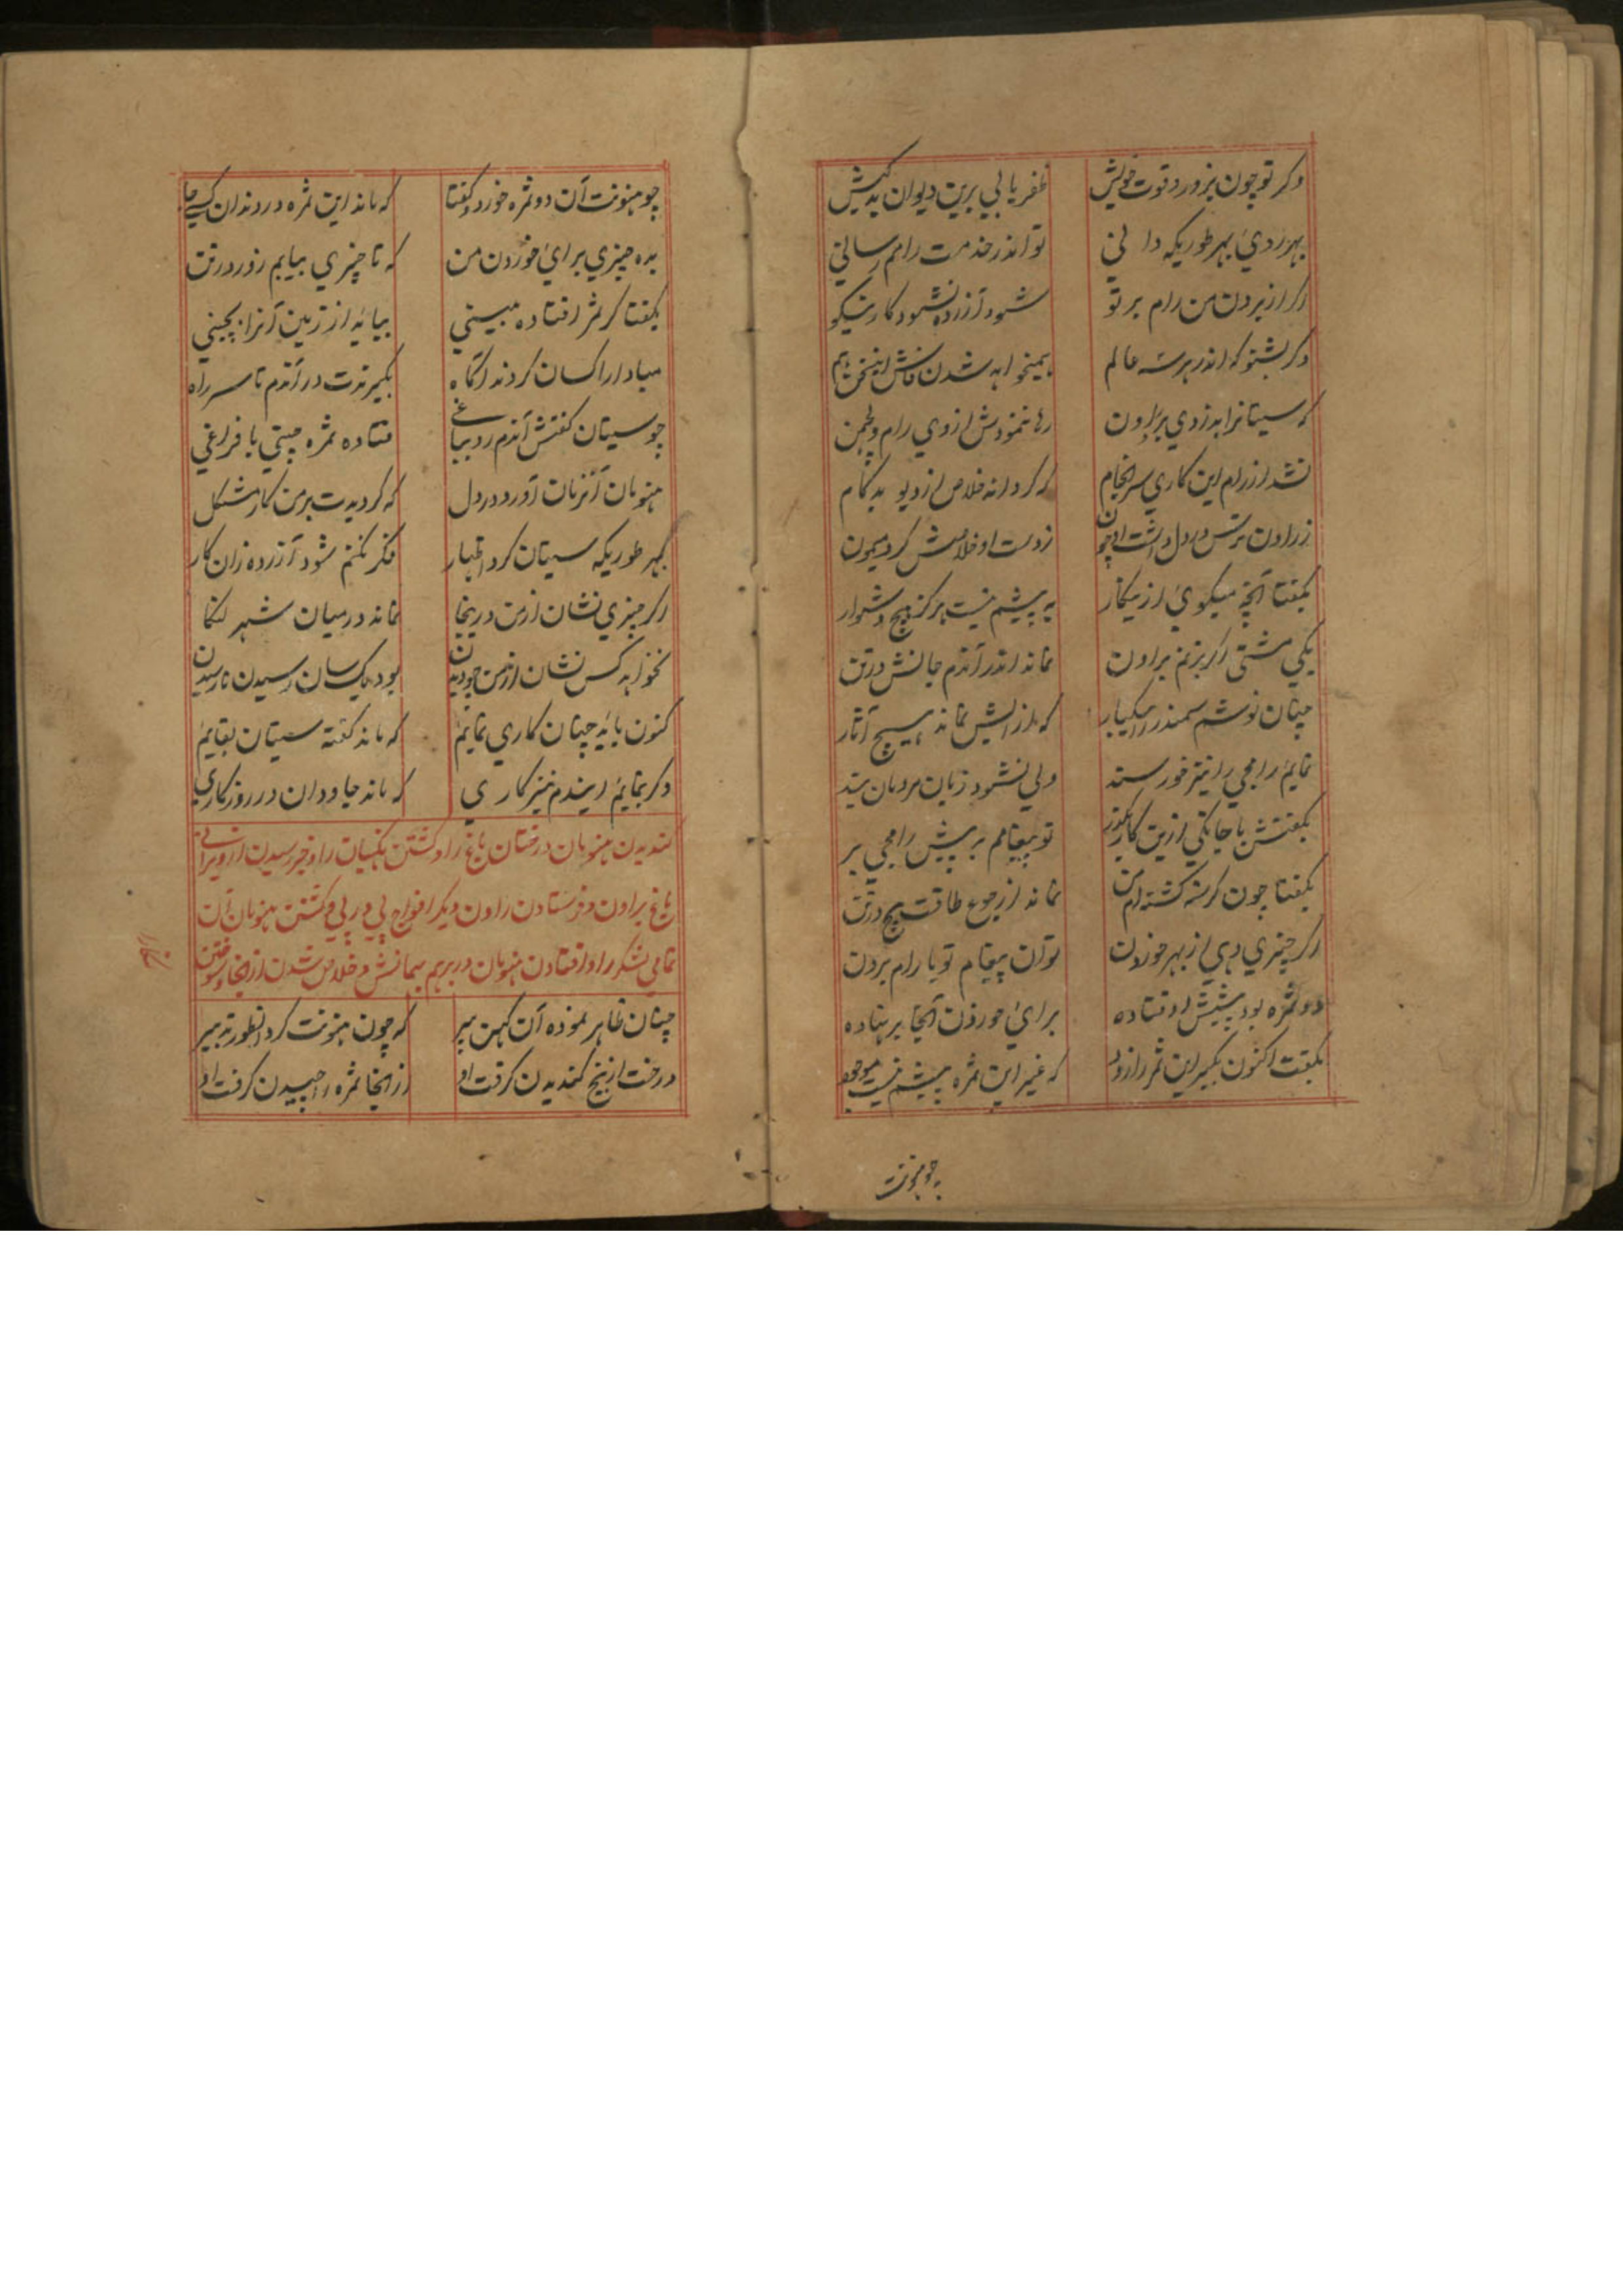 وکر تو چون بزور و قوت خویش ظفر یابی برین دیوان بدکیش
بهر ردی بهر طوریکه دانی تو اندر خدمت رامم رسانی
اکر از بردن من رام بر تو شود آزرده نشود کار نیکو
دکر بشنو که اندر هرسه عالم همیخواهد شدن فاش اینسخن هم
که سیتا را بدزدی برد راون رها ننمودش از وی رام و لچمن
نشد از رام این کاری سرانجام که کردانه خلاص از دیو بدکام
ز راون ترس در دل داشت او چون ز دست او خلاصش کرد میمون
بکفتا آنچه میکوی ازینکار به پیشم نیست هرکز هیچ دشوار
یکی مشتی اکر بزنم براون نماند اندر آندم جانش در تن
چنان نوشم سمندر را بیکبار که از آبش نماند هیچ آثار
نمایم رامجی را نیز خورسند ولی نشود زبان مردمان بند
بکفتش با جانکی ازین کار بکذر تو پیغامم به پیش رامجی بر
بکفتا چون کرسنه کشته ام من نماند از جوع طاقت هیچ در تن
اکر چیزی دهی از بهر خوردن توان پیغام تو با رام بردن
دو ثمره بود پیشش اوفتاده برای خوردن آنجا بر نهاده
بکفت اکنون بکیر این ثمر را زود که غیر این ثمره پیشم نیست موجود
چو هنونت
چو هنونت آن دو ثمره خورد و کفتا که ماند این ثمره در دندان
بده چیزی برای خوردن من که تا چیزی بیابم زور در تن
بکفتا کر ثمر افتاده بینی بیایه از زمین آنرا بچینی
مبادا راکسان کردند آکاه بکیرندت در آندم تا سر راه
چو سیتا کفتش آندم رو بباغی فتاده ثمره چینی با فراغی
هنومان آنزمان آورد در دل که کردیدست بر من کار مشکل
بهر طوریکه سیتان کرد اظهار مکر نکنم شود آزرده زان کار
اکر چیزی نشان از من درینجا نماند درمیان شهر لنکا
نخواهد کس نشان از من چو دیدن بود یکسان رسیدن نارسیدن
کنون باید چنان کاری نمایم که ماند کفته سیتان بقایم
دکر بنمایم ایندم نیز کاری که ماند جاودان در روزکاری
کندیدن هنومان درختان باغ را و کشتن نکهبانان را و خبر رسیدن از ویرانی
باغ براون و فرستادن راون دیکر افواج پی در پی و کشتن هنومان آن
تمامی لشکر را و افتادن هنومان در برهم پهانش و خلاص شدن از آنجا و سوختن
لنکا
چنان ظاهر نموده آن کهن پیر که چون هنونت کرد اینطور تدبیر
درخت از بیخ کندیدن کرفت او از آنجا ثمره را چیدن کرفت او